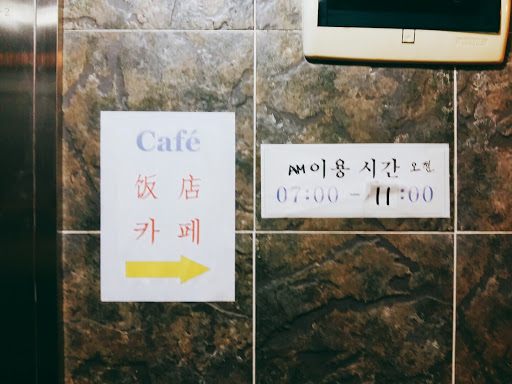 Café
饭店
카페
AM 이용 시간 오전
07:00 - 11:00